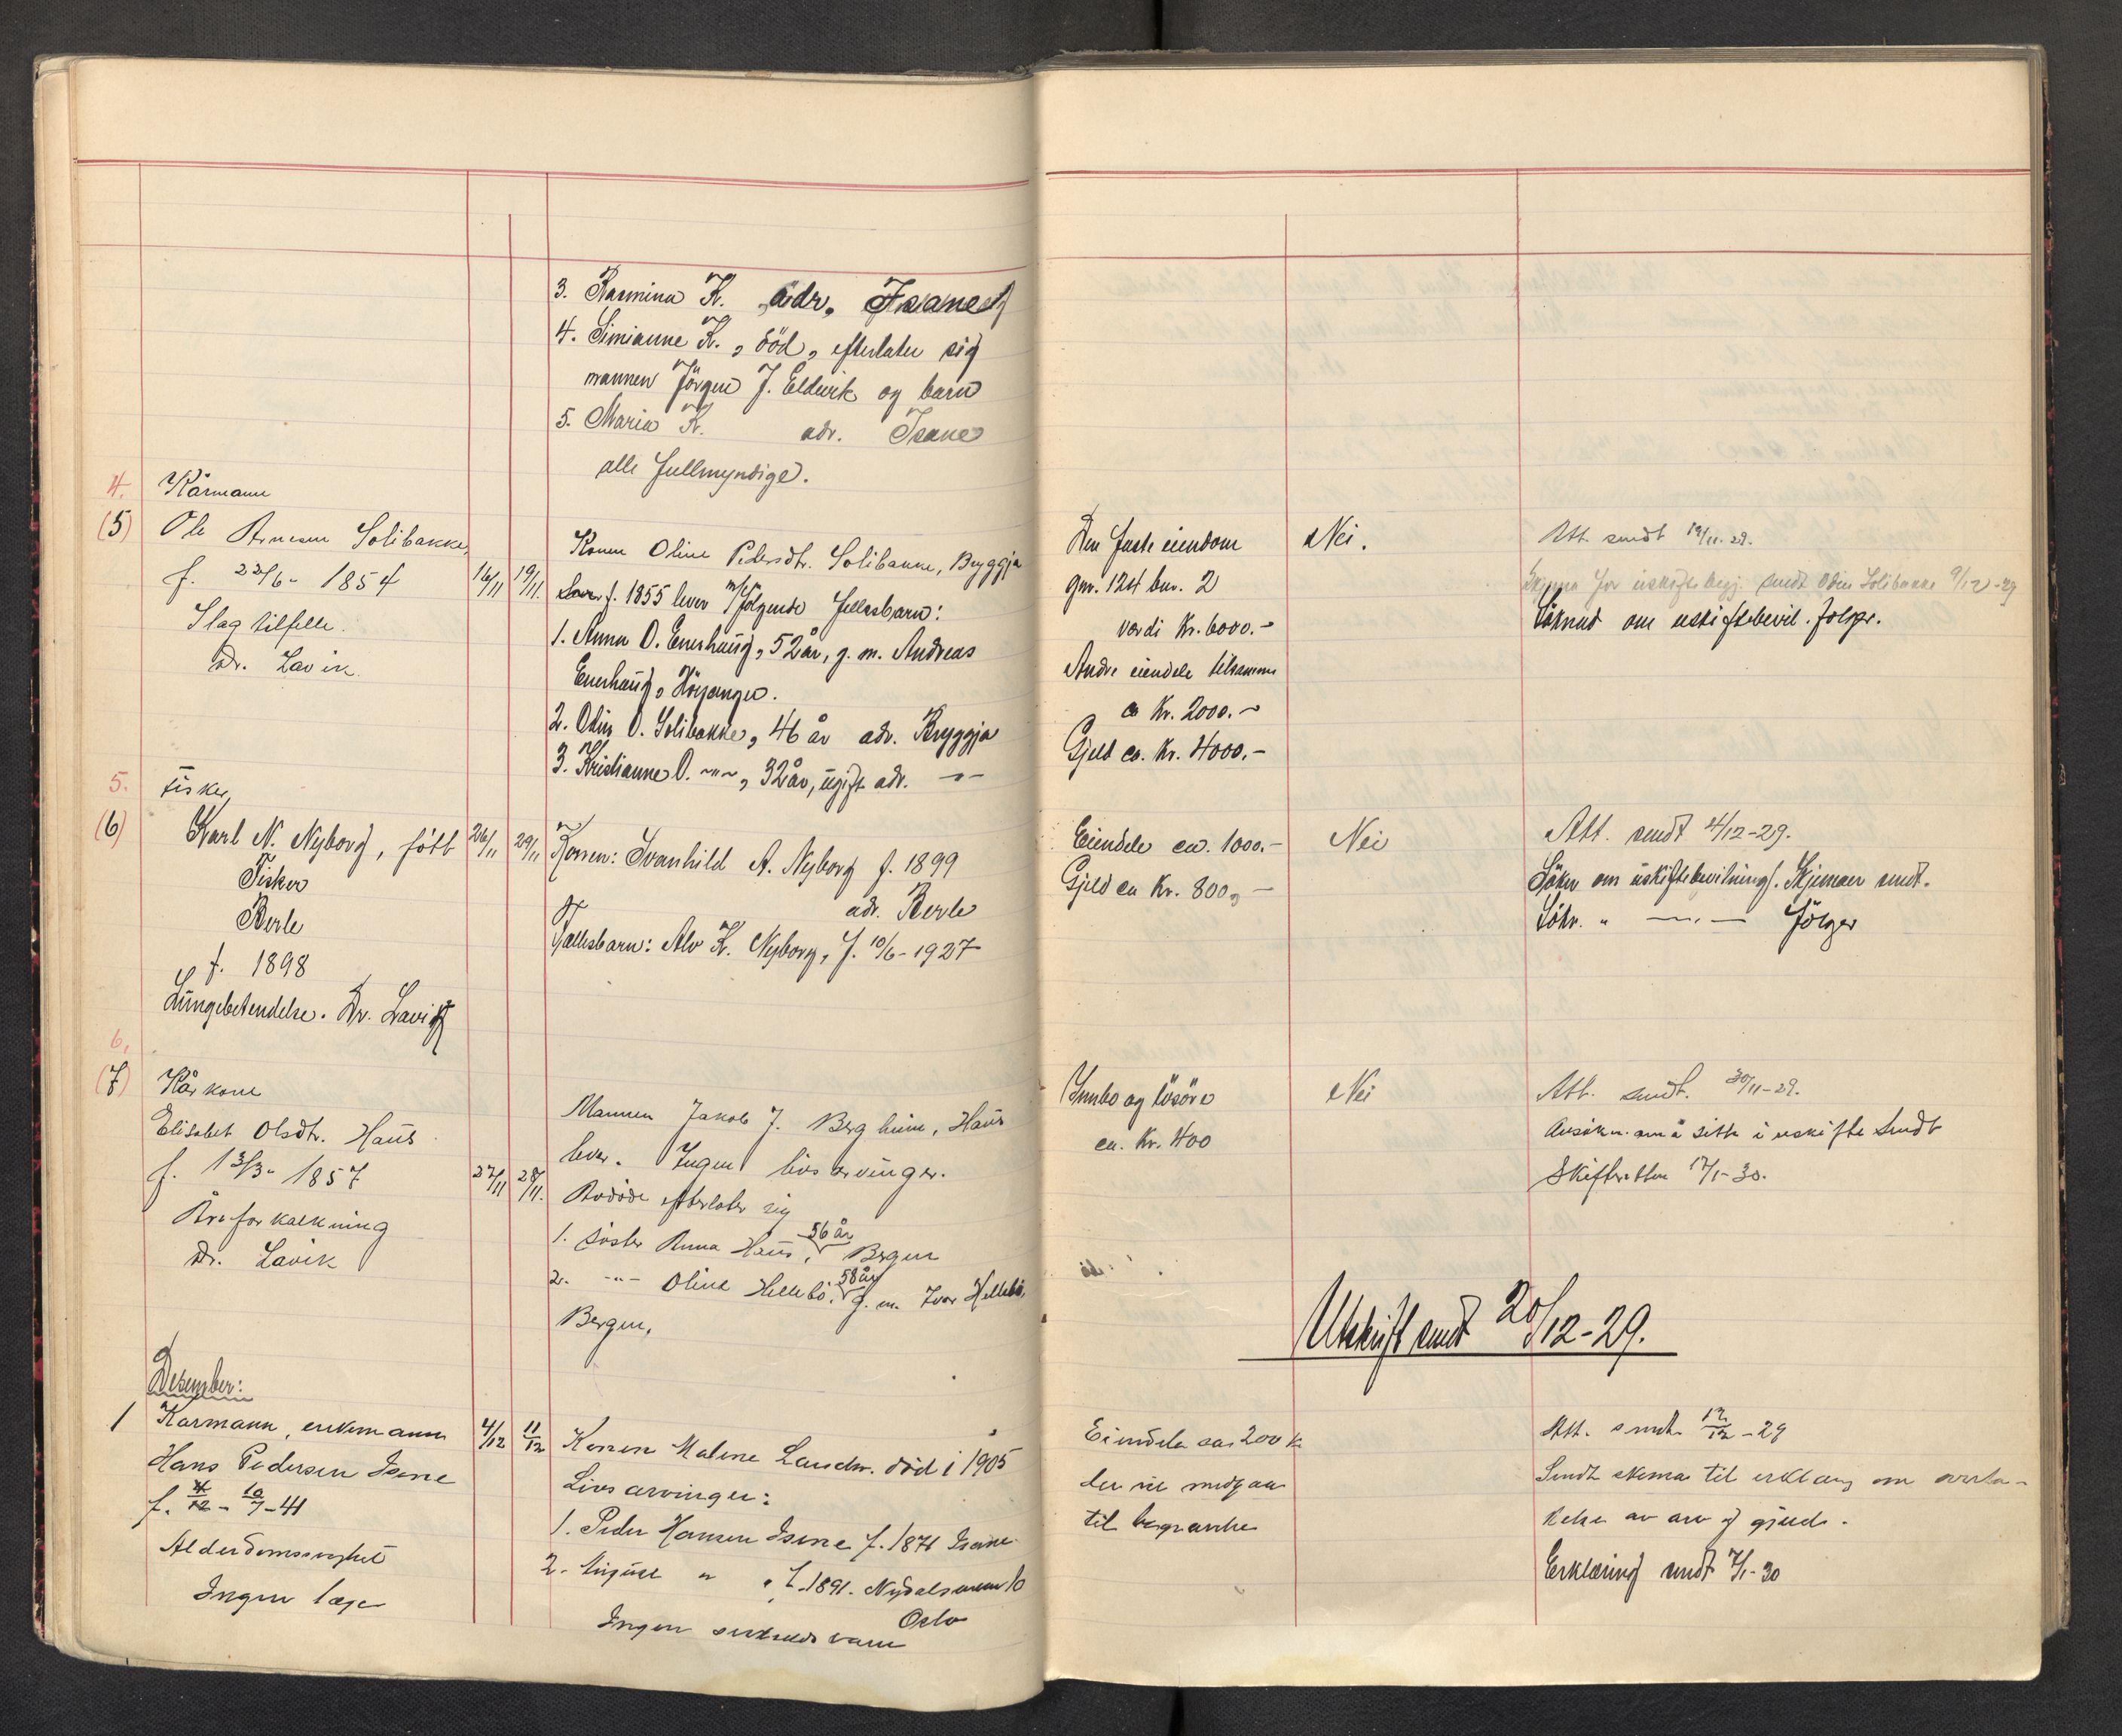 3. Rasmina K. adr. Isane
4. Simianne K., död, efterlater sig
mannen Jörgen J. Eldevik og barn
5. Maria K. adr. Isane
alle fullmyndige.
4. Kårmann
(5) Ole Arnesen Solibakke,
f. 22/6- 1854
Slagtilfelle.
Dr. Lavik.
16/11 19/11.
Konen Oline Pedersdtr. Solibakke, Bryggja
f. 1855 lever m/ følgende fellesbarn:
1. Anna O. Enerhaug, 52 år, g. m. Andreas
Enerhaug, Höyanger.
2. Odin O. Solibakke, 46 år adr. Bryggja
3. Kristianne O. -"-, 32 år, ugift adr. -"-
Den faste eiendom
gnr. 124 bnr. 2
verdi Kr. 6000.-
Andre eiendele tilsammen
ca Kr. 2000.-
Gjeld ca. Kr. 4000.-
Nei.
Att. sendt 19/11-29.
Skjema for uskiftebegj. sendt Odin Solibakke 9/12-29
Söknad om uskiftebevil. følger.
5. Fisker,
(6) Karl N. Nyborg, født
Fisker
Berle
f. 1898
Lungebetendelse. Dr. Lavik
26/11 29/11
Konen: Svanhild A. Nyborg f. 1899
adr. Berle
Fællesbarn: Alv K. Nyborg, f. 10/6-1927
Eiendele ca. 1000.-
Gjeld ca Kr. 800,-
Nei
Att. sendt 4/12-29.
Söker om uskiftebevilning. Skjemaer sendt.
Sökn. " -"- følger
6.
(7) Kårkone
Elisabet Olsdtr. Haus
f. 13/3- 1857
Åreforkalkning
Dr. Lavik
27/11 28/11.
Mannen Jakob J. Bergheim, Haus
lever. Ingen livsarvinger.
Avdöde efterlater sig
1. söster Anna Haus, 56 år, Bergen
2. -"- Oline Hellebö, 58 år, g. m. Ivar Hellebö,
Bergen.
Innbo og lösöre
ca. Kr. 400
Nei
Att. sendt. 30/11-29.
Ansökn. om å sitte i uskifte sendt
Skifteretten 17/1-30.
Utskrift sendt 20/12-29.
Desember:
1 Kårmann, enkemann
Hans Pedersen Isene
f. 10/7-41
Alderdomssvakhet
Ingen læge
4/12 11/12
Konen Malene Larsdtr. död i 1905
Livsarvinger:
1. Peder Hansen Isene f. 1871 Isene
2. " " f. 1891. Nydalsveien 10
Oslo
Ingen særkuldsbarn
Eiendele ca. 200 kr
der vil medgaa
til begravelse
Att. sendt 12/12-29
Sendt skema til erklæring om overta-
kelse av arv og gjeld.
Erklæring sendt 7/1-30